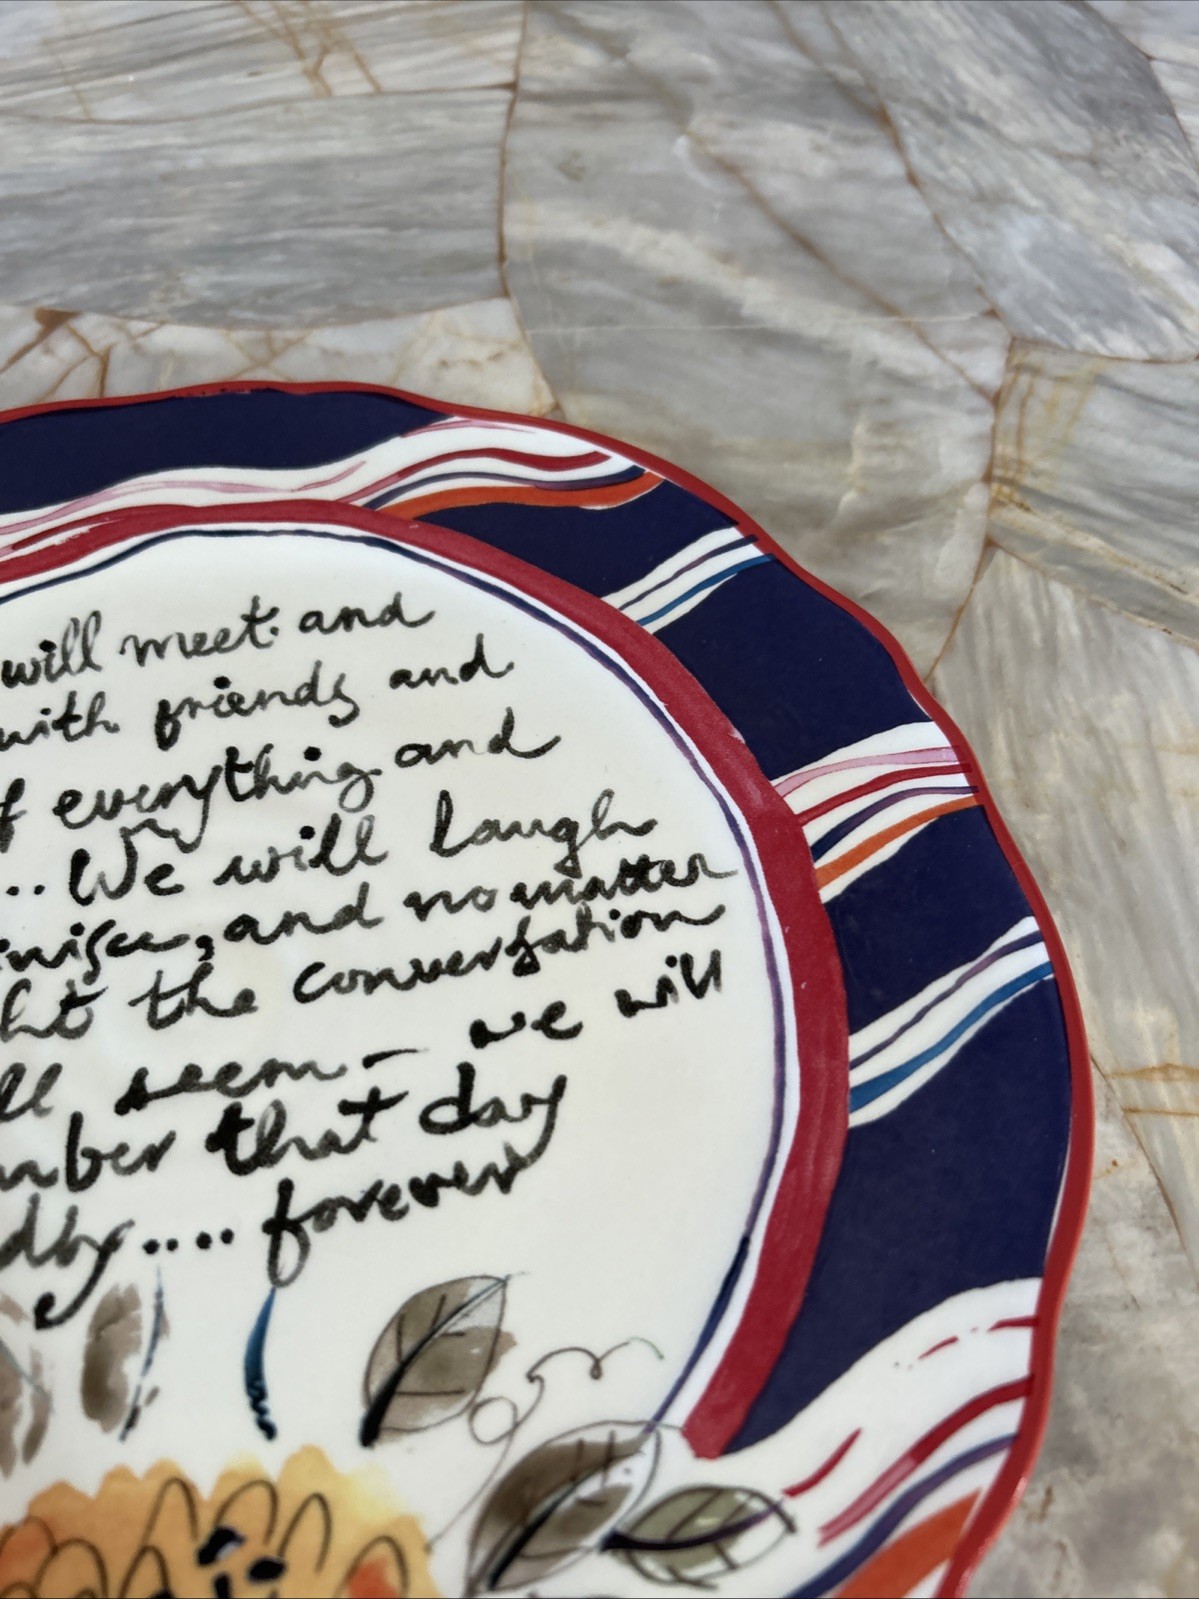 will meet and
with friends and
f everything and
... We will laugh
inisce, and no matter
ht the conversation
ll seem – we will
mber that day
dly .... forever